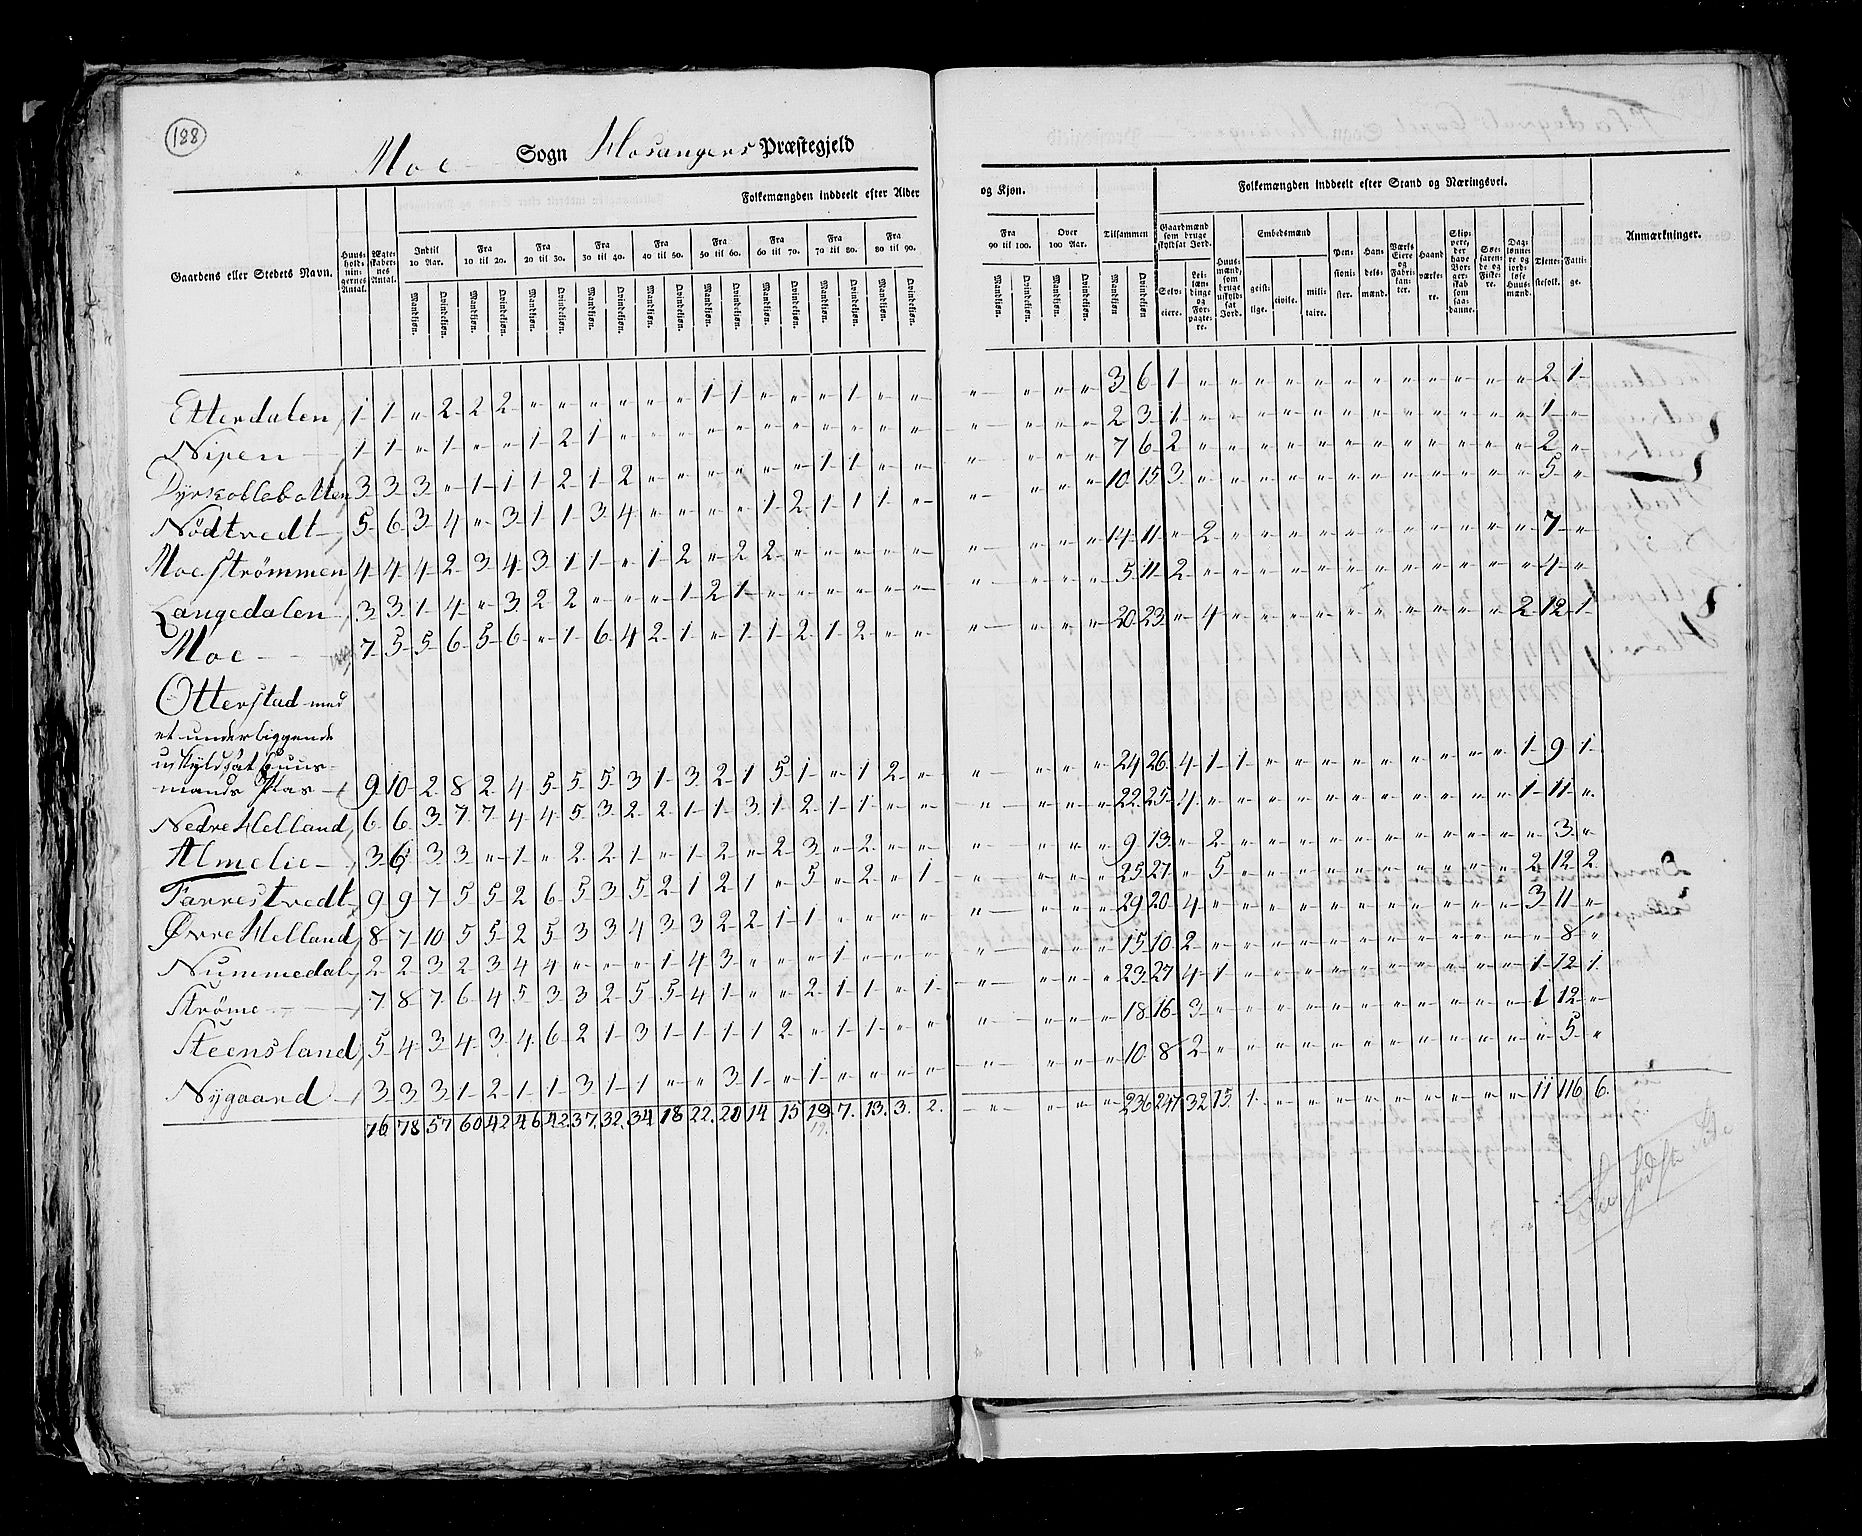 188
Moe Sogn Hosangers Præstegjeld
Gaardens eller Stedets Navn. | Huusholdningernes Antal. | Ægteskabernes Antal. | Folkemængden inddeelt efter Alder og Kjøn. | Tilsammen | Folkemængden inddeelt efter Stand og Næringsvei. | Anmærkninger.
Indtil 10 Aar. | Fra 10 til 20. | Fra 20 til 30. | Fra 30 til 40. | Fra 40 til 50. | Fra 50 til 60. | Fra 60 til 70. | Fra 70 til 80. | Fra 80 til 90. | Fra 90 til 100. | Over 100 Aar. | Gaardmænd som bruge skyldsat Jord. | Huusmænd, som bruge uskyldsat Jord. | Embedsmænd | Pensionister. | Handelsmænd. | Værks Eiere og Fabrikanter. | Haandværkere. | Skippere, der have Borgerskab som saadanne. | Søefarende og Fiskere. | Daglønnere og jordløse Huusmænd. | Tjenestefolk. | Fattige.
Mandkiøn. | Qvindekiøn. | Selveiere. | Leilændinge og Forpagtere. | geistlige. | civile. | militaire.
Etterdalen 1 1 " 2 2 2 " " " " " " 1 1 " " " 1 " " " " " " 3 6 1 " " " " " " " " " " " " 2 1
Nipen 1 1 " 1 " " 1 2 1 " " " " " " " " " " " " " " " 2 3 1 " " " " " " " " " " " " 1 "
Dyrkollebotten 3 3 3 " 1 1 1 2 1 2 " " " " " " 1 1 " " " " " " 7 6 2 " " " " " " " " " " " " 2 "
Nødtvedt 5 6 3 4 " 3 1 1 3 4 " " " " 1 2 1 1 1 " " " " " 10 15 3 " " " " " " " " " " " " 5 "
Moestrømmen 4 4 4 2 3 4 3 1 1 " 1 2 " 2 2 " " " " " " " " " 14 11 " 2 " " " " " " " " " " " 7 "
Langedalen 3 3 1 4 " 3 2 2 " " " 1 2 1 " " " " " " " " " " 5 11 2 " " " " " " " " " " " " 4 "
Moe 7 5 5 6 5 6 " 1 6 4 2 1 " 1 1 2 1 2 " " " " " " 20 23 " 4 " " " " " " " " " " 2 12 1
Otterstad med
et underliggende
uskyldsat Huus-
mands Plas 9 10 2 8 2 4 5 5 5 3 1 3 2 1 5 1 " 1 2 " " " " " 24 26 4 1 1 " " " " " " " " " 1 9 1
Nedre Helland 6 6 3 7 7 4 4 5 3 2 2 1 1 3 1 2 1 1 " " " " " " 22 25 4 " " " " " " " " " " " 1 11 "
Almelie 3 6 3 3 " 1 " 2 2 1 " 1 2 " 2 3 " 2 " " " " " " 9 13 " 2 " " " " " " " " " " " 3 "
Farrestvedt 9 9 7 5 5 2 6 5 3 5 2 1 2 1 " 5 " 2 " 1 " " " " 25 27 " 5 " " " " " " " " " " 2 12 2
Øvre Helland 8 7 10 5 5 2 5 3 3 4 3 3 2 2 1 1 " " " " " " " " 29 20 4 " " " " " " " " " " " 3 11 "
Nummedal 2 2 3 2 3 4 4 " " " 1 4 3 " " " 1 " " " " " " " 15 10 2 " " " " " " " " " " " " 8 "
Strøme 7 8 7 6 4 5 3 3 2 5 5 4 1 " " 2 1 1 " 1 " " " " 23 27 4 1 " " " " " " " " " " 1 12 1
Steensland 5 4 3 4 3 4 6 2 1 3 1 1 1 1 2 " 1 1 " " " " " " 18 16 3 " " " " " " " " " " " 1 12 "
Nygaard 3 3 3 1 2 1 1 3 1 1 " " 3 1 " 1 " " " " " " " " 10 8 2 " " " " " " " " " " " " 5 "
76 78 57 60 42 46 42 37 32 34 18 22 20 14 15 19 7 13 3 2 " " " " 236 247 32 15 1 " " " " " " " " " 11 116 6
19